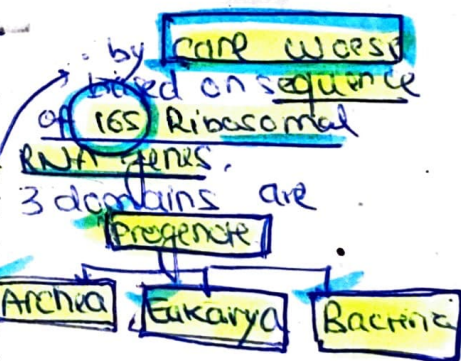 : by Carl Woese
based on sequence
of 16S Ribosomal
RNA genes.
3 domains are
Progenote
Archea Eukarya Bacteria